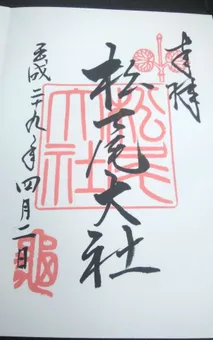 奉拝
松尾大社
松尾大社
平成二十九年四月二日